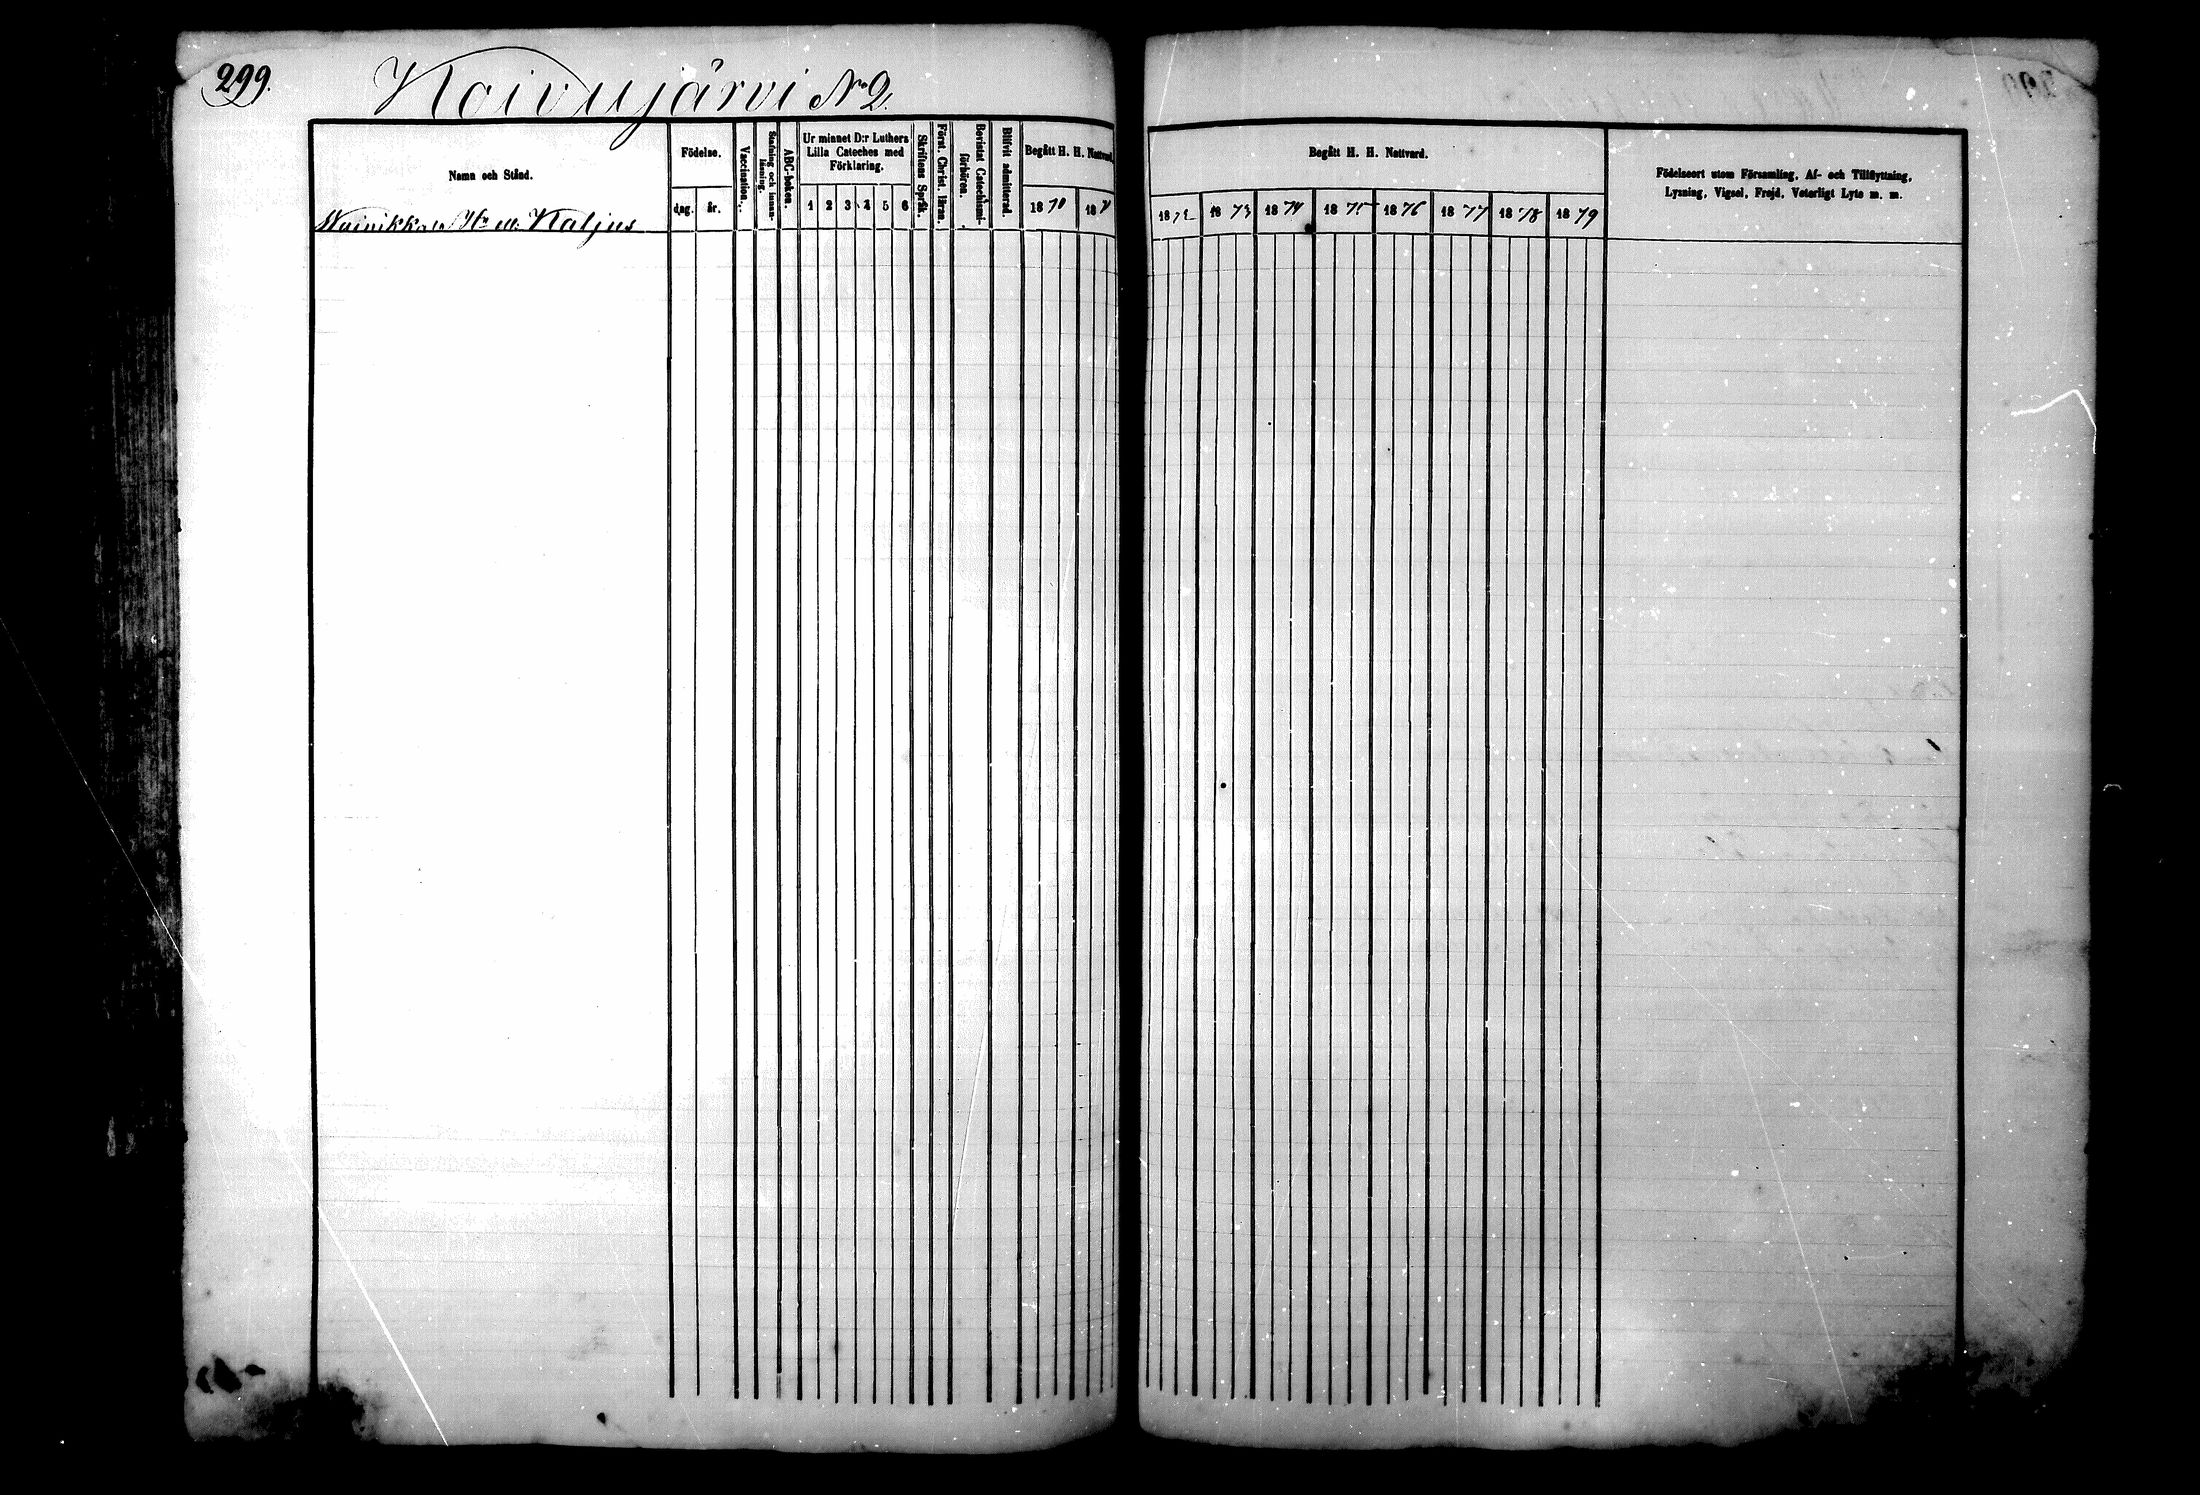 299.
Koivujärvi No 2.
Namn och Stånd.
Födelse.
dag. år.
Vaccination.
Stafning och innanläsning.
ABC-boken.
Ur minnet D:r Luthers
Lilla Cateches med
Förklaring.
1 2 3 4 5 6
Skriftens Språk.
Först. Christ. läran.
Bevistat Catechismiförhören.
Blifvit admitterad.
Begått H. H. Nattvard.
1870 187
Begått H. H. Nattvard.
1872 1873 1874 1875 1876 1877 1878 1879
Födelseort utom Församling, Af- och Tillflyttning,
Lysning, Vigsel, Frejd, Veterligt Lyte m. m.